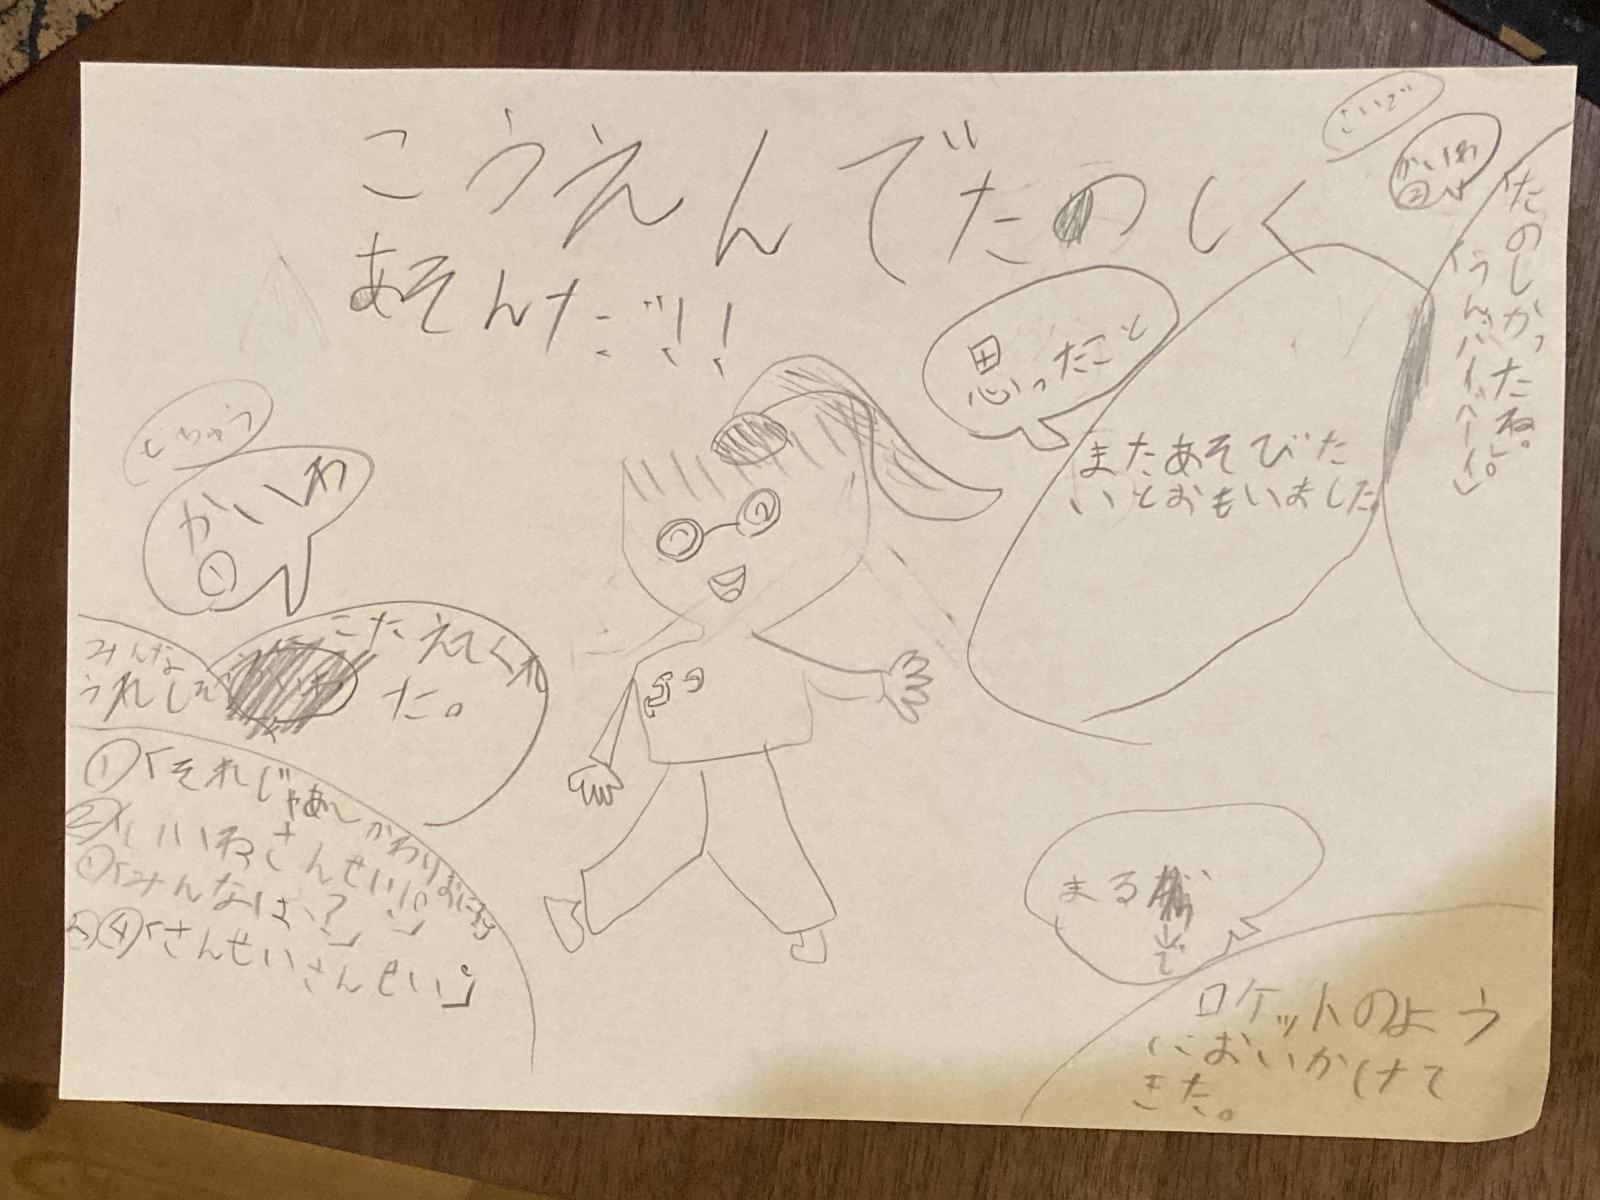 こうえんでたのしく
あそんだ!!
さいご
かいわ
②
「たのしかったね。」
「うん、バーイベーイ。」
思ったこと
またあそびた
いとおもいました。
とちゅう
かいわ
①
みんな
うれしそ
こたえてくれ
た。
①「それじゃあ〜かわりおにね」
②「いいねさんせい!。」
①「みんなは、?」
③④「さんせいさんせい。」
まる
で
ロケットのよう
においかけて
きた。